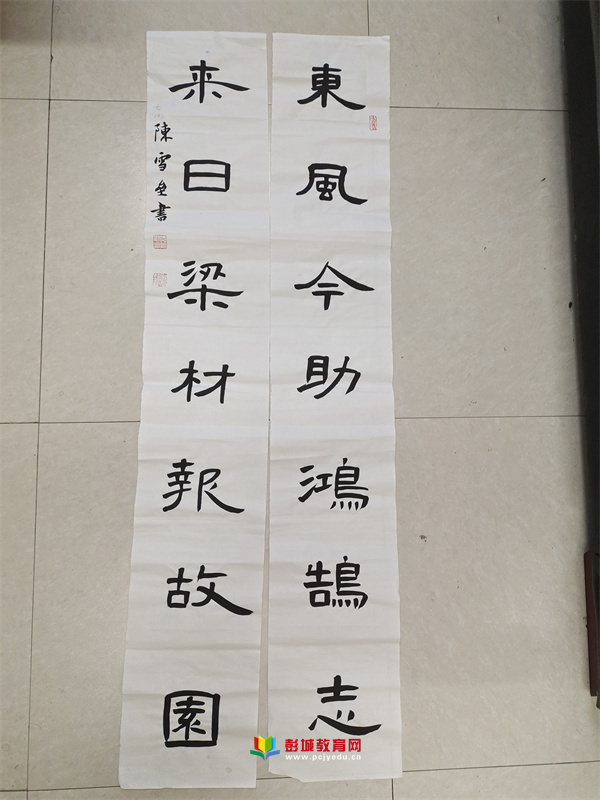 東風今助鴻鵠志
来日梁材報故園
陳雪垒書
彭城教育网
www.pcjyedu.cn